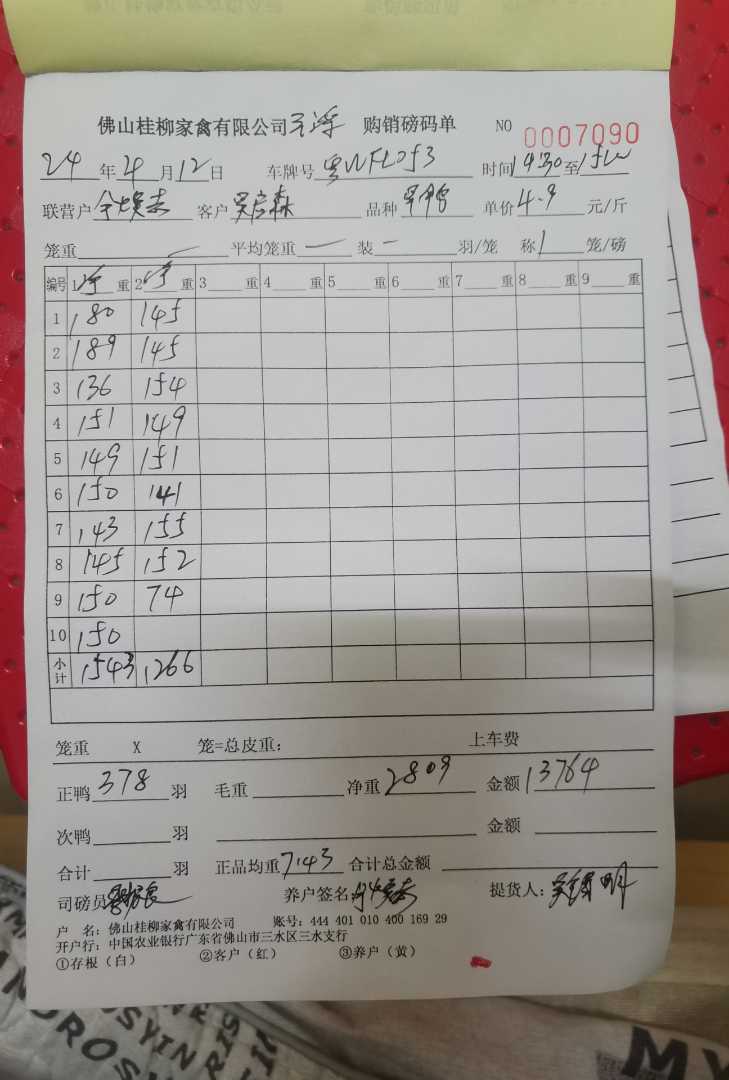 佛山桂柳家禽有限公司 购销磅码单 NO 0007090
24年4月12日 车牌号 粤WFL053 时间14:30至
联营户 客户 品种 单价4.9元/斤
笼重 一 平均笼重 一 装 一 羽/笼 称 1 笼/磅
编号 1 净 重 2 净 重 3 重 4 重 5 重 6 重 7 重 8 重 9 重
1 180 145
2 189 145
3 136 154
4 151 149
5 149 151
6 150 141
7 143 155
8 145 152
9 150 74
10 150
小计 1543 1266
笼重 X 笼=总皮重： 上车费
正鸭 378 羽 毛重 净重 2809 金额 13764
次鸭 羽 金额
合计 羽 正品均重 7.43 合计总金额
司磅员 养户签名 提货人：
户 名：佛山桂柳家禽有限公司 账号：444 401 010 400 169 29
开户行：中国农业银行广东省佛山市三水区三水支行
①存根（白） ②客户（红） ③养户（黄）